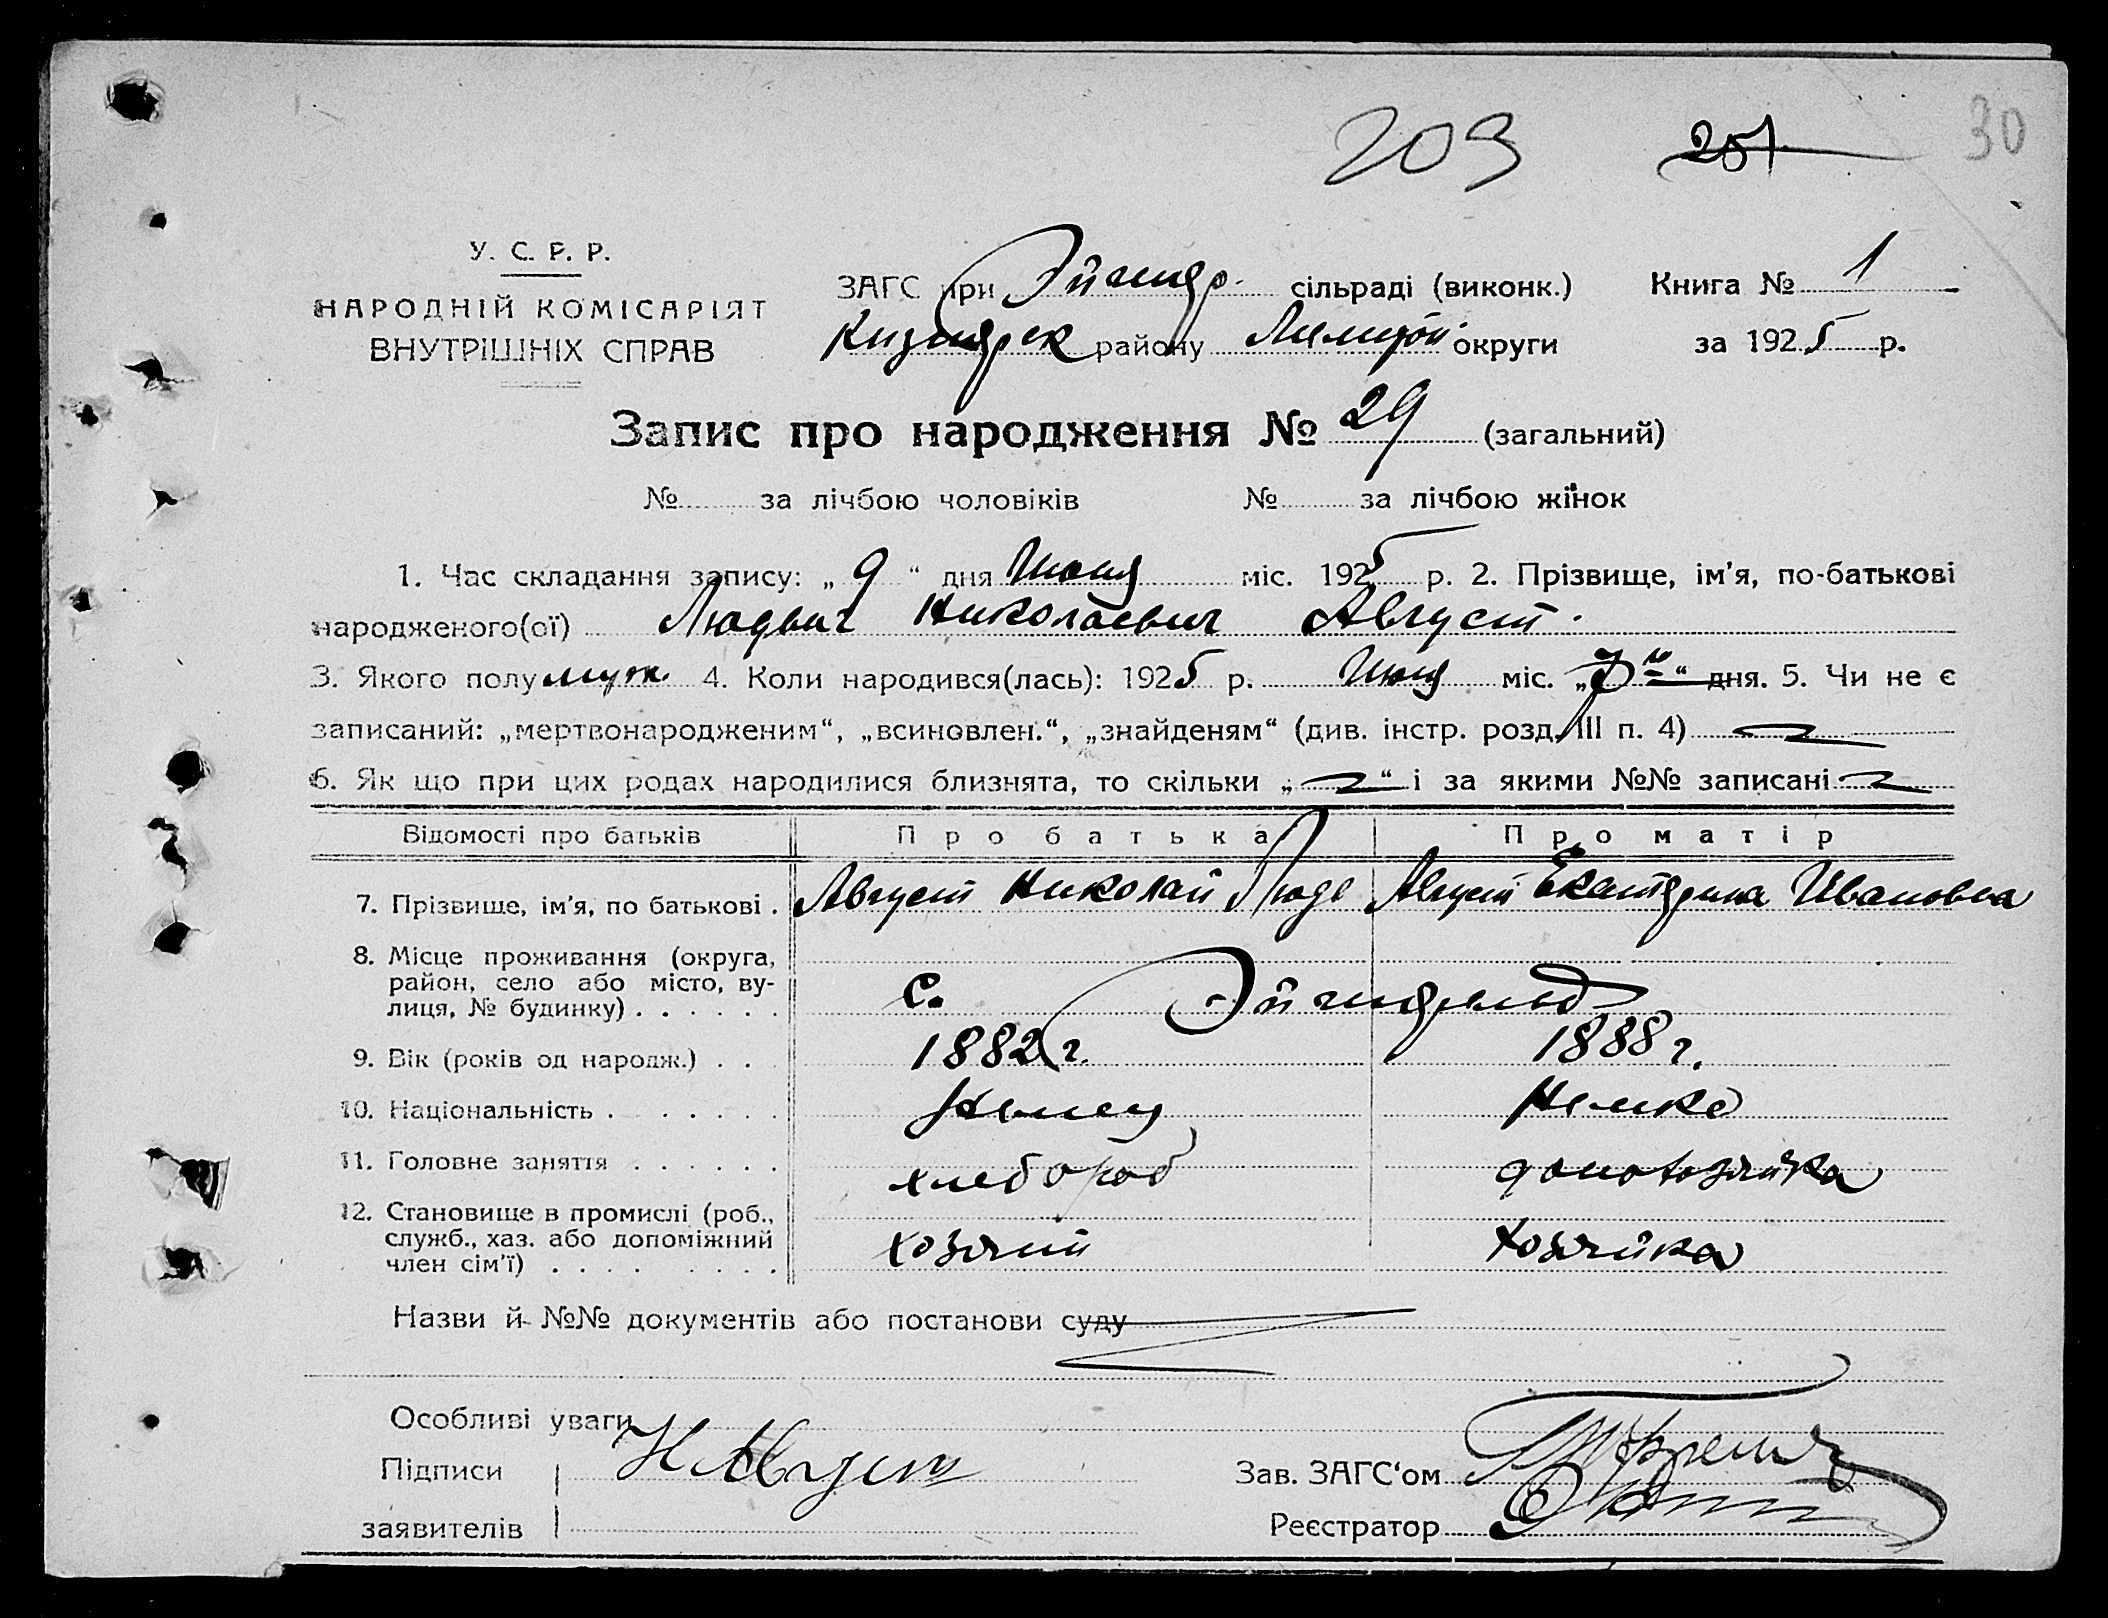 30
209 251
У. С. Р. Р.
НАРОДНІЙ КОМІСАРІЯТ
ВНУТРІШНІХ СПРАВ
ЗАГС при Эйгенф. сільраді (виконк.) Книга № 1
району Мелитоп. округи за 1925 р.
Запис про народження № 29 (загальний)
№ за лічбою чоловіків № за лічбою жінок
1. Час складання запису: „ 9 “ дня Июня міс. 1925 р. 2. Прізвище, ім'я, по-батькові
народженого(ої) Людвиг Николаевич Август.
3. Якого полу муж. 4. Коли народився(лась): 1925 р. Июня міс. „7го“ дня. 5. Чи не є
записаний: „мертвонародженим“, „всиновлен.“, „знайденям“ (див. інстр. розд. III п. 4)
6. Як що при цих родах народилися близнята, то скільки „ “ і за якими №№ записані
Відомості про батьків Про батька Про матір
7. Прізвище, ім'я, по батькові . Август Николай Людв Август Екатерина Ивановна
8. Місце проживання (округа,
район, село або місто, ву-
лиця, № будинку) . . . . . . с. Эйгенфельд
9. Вік (років од народж.) . . . 1882 г. 1888 г.
10. Національність . . . . . . Немец Немка
11. Головне заняття . . . . . . хлебороб домохозяйка
12. Становище в промислі (роб.,
служб., хаз. або допоміжний
член сім'ї) . . . . . . . . хозяин хозяйка
Назви й №№ документів або постанови суду
Особливі уваги
Підписи Н Август Зав. ЗАГС‘ом
заявителів Реєстратор